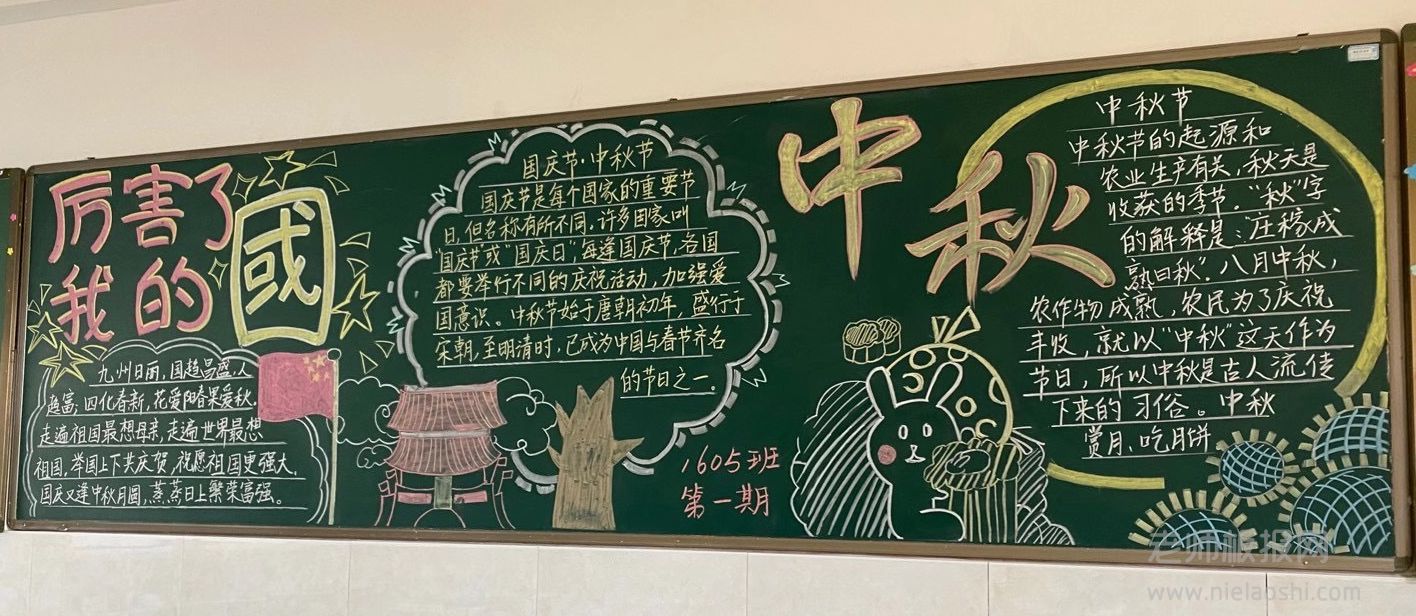 厉害了
我的
國
九州日丽,国越昌盛,人
越富;四化春新,花爱阳春果爱秋.
走遍祖国最想母亲,走遍世界最想
祖国,举国上下共庆贺,祝愿祖国更强大.
国庆又逢中秋月圆,蒸蒸日上繁荣富强。
国庆节·中秋节
国庆节是每个国家的重要节
日,但名称有所不同.许多国家叫
"国庆节或"国庆日",每逢国庆节,各国
都要举行不同的庆祝活动,加强爱
国意识。中秋节始于唐朝初年,盛行于
宋朝,至明清时,已成为中国与春节齐名
的节日之一.
1605班
第一期
中秋
中秋节
中秋节的起源和
农业生产有关,秋天是
收获的季节."秋"字
的解释是:"庄稼成
熟曰秋".八月中秋,
农作物成熟,农民为了庆祝
丰收,就以"中秋"这天作为
节日,所以中秋是古人流传
下来的习俗。中秋
赏月、吃月饼
老师板报网
www.nielaoshi.com